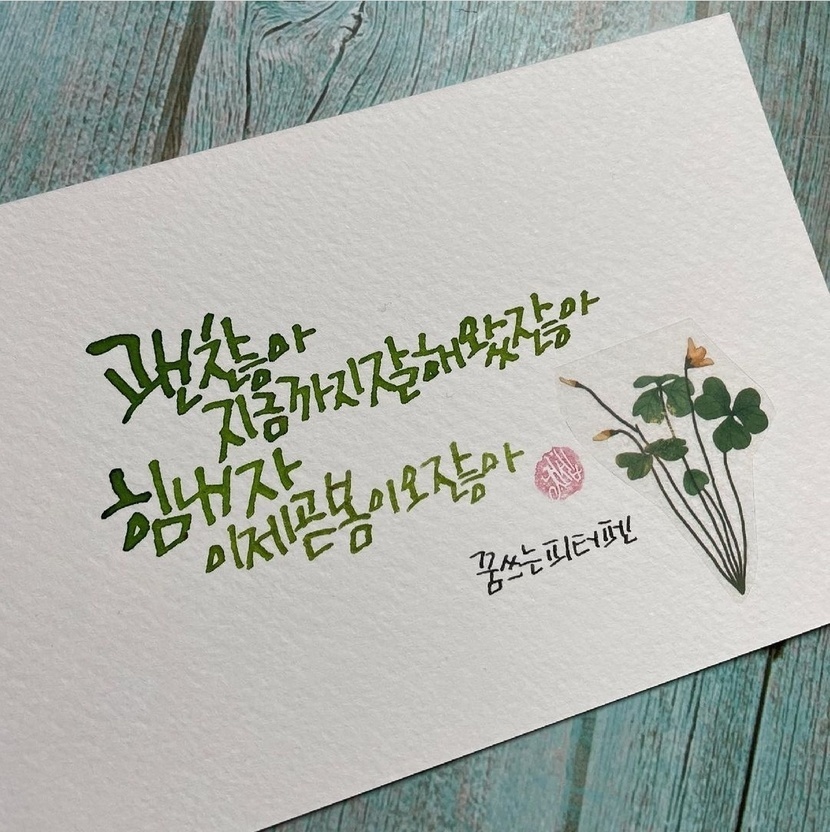 괜찮아
지금까지잘해왔잖아
힘내자
이제곧봄이오잖아
꿈쓰는피터펜